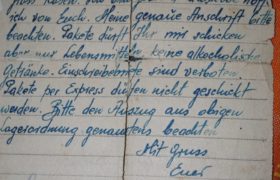 ich von Euch. Meine genaue Anschrift bitte
beachten. Pakete dürft Ihr mir schicken
aber nur Lebensmittel, keine alkoholische
Getränke. Einschreibebriefe sind verboten.
Pakete per Express dürfen nicht geschickt
werden. Bitte den Auszug aus obigen
Lagerordnung genauestens beachten
Mit Gruss
Euer